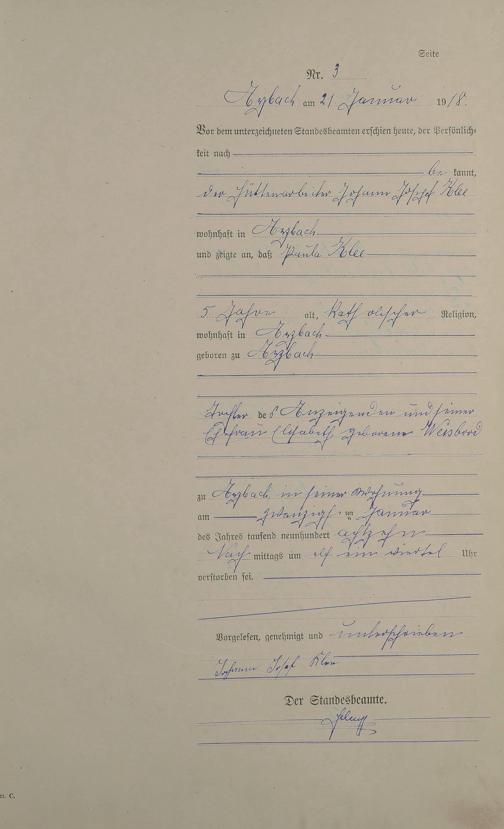 Seite
Nr. 3
Arzbach am 21 Januar 1918.
Vor dem unterzeichneten Standesbeamten erschien heute, der Persönlich-
keit nach
be kannt,
der Hüttenarbeiter Johann Joseph Klee
wohnhaft in Arzbach
und zeigte an, daß Paula Klee
5 Jahre alt, kath olischer Religion,
wohnhaft in Arzbach
geboren zu Arzbach
Tochter des Anzeigenden und seiner
Ehefrau Elisabeth geborene
zu Arzbach in seiner Wohnung
am zwanzigs ten Januar
des Jahres tausend neunhundert achtzehn
Nach mittags um elf ein viertel Uhr
verstorben sei.
Vorgelesen, genehmigt und unterschrieben
Johann Josef Klee
Der Standesbeamte.
m. C.